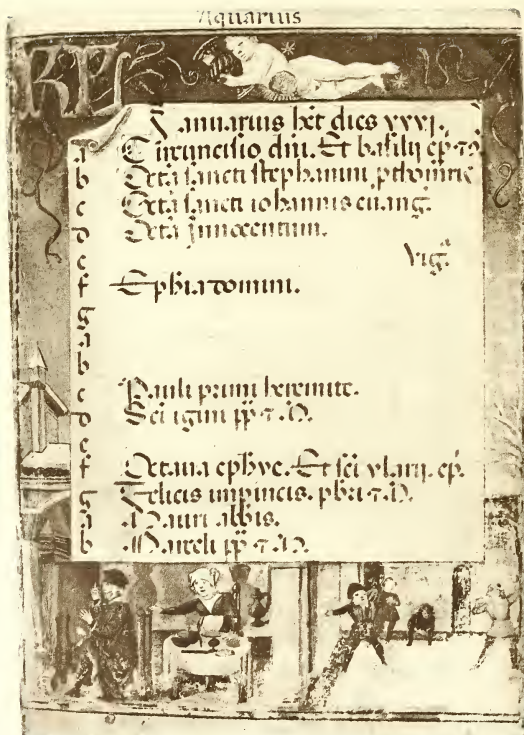 Aquarius
KL
Januarius hēt dies xxxi.
a Circuncisio dñi. Et basilij ep̄. ⁊ ɔ̄.
b Octā sancti stephanini
c Octā sancti iohannis euang.
d Octā innocentum.
e Vigᵃ
f Ephīa domini.
g
a
b
c Pauli primi heremite.
d Sci igini pp̄ ⁊ m̄.
e
f Octaua ephye. Et sci ylarij. ep̄.
g Felicis inpincis. pbr̄i ⁊ m̄.
a Mauri abbis.
b Marceli pp̄ ⁊ m̄.